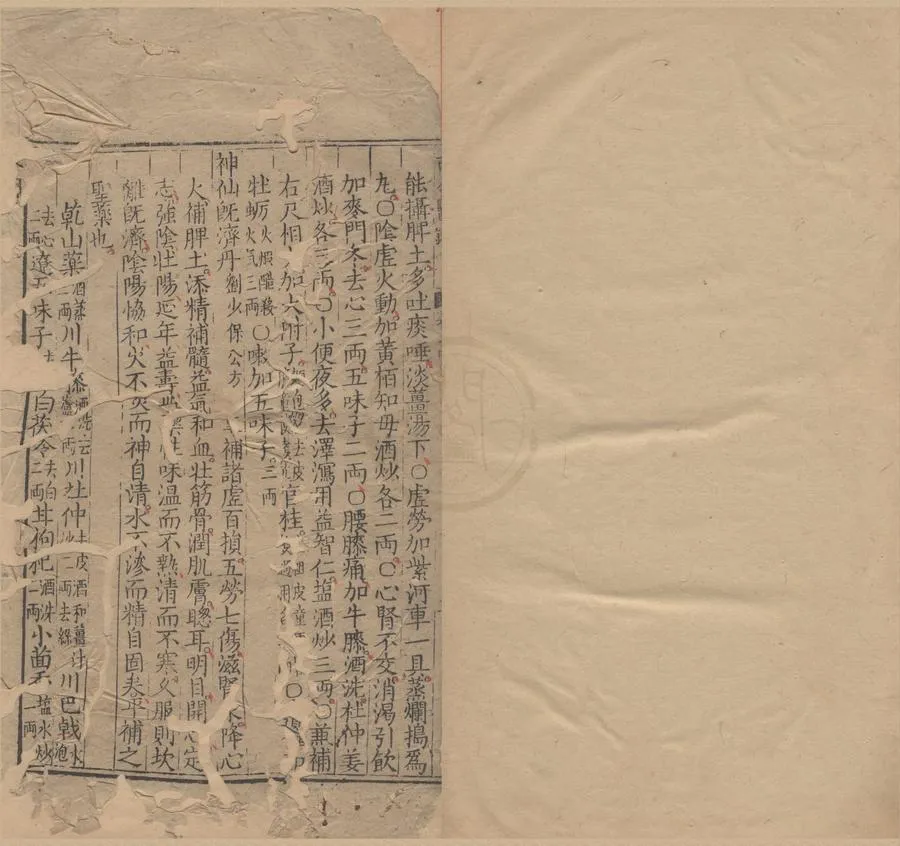 能攝脾土多吐痰唾淡薑湯下〇虛勞加紫河車一具蒸爛搗爲
丸〇陰虛火動加黃栢知母酒炒各二兩〇心腎不交消渴引飲
加麥門冬去心三兩五味子二兩〇腰膝痛加牛膝酒洗杜仲姜
酒炒各三兩〇小便夜多去澤瀉用益智仁塩酒炒三兩〇兼補
右尺相火加大附子去皮官桂去皮童
牡蛎火煅醋淬火氣三兩〇嗽加五味子三兩
神仙既濟丹劉少保公方補諸虛百損五勞七傷滋腎水降心
火補脾土添精補髓益氣和血壯筋骨潤肌膚聰耳明目開心定
志強陰壯陽延年益壽此藥性味溫而不熱清而不寒久服則坎
離既濟陰陽恊和火不炎而神自清水不滲而精自固夫平補之
聖藥也
乾山藥酒蒸二兩川牛膝酒洗去蘆二兩川杜仲去皮酒和薑汁炒二兩去絲川巴戟水泡
去心二兩遼五味子白茯苓去皮二兩甘枸杞酒洗二兩小茴香塩水炒一兩